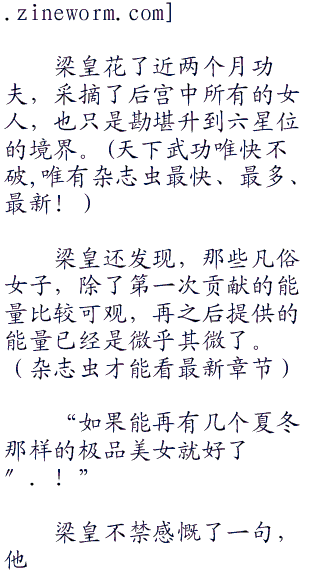 .zineworm.com]
梁皇花了近两个月功
夫，采摘了后宫中所有的女
人，也只是勘堪升到六星位
的境界。(天下武功唯快不
破,唯有杂志虫最快、最多、
最新！)
梁皇还发现，那些凡俗
女子，除了第一次贡献的能
量比较可观，再之后提供的
能量已经是微乎其微了。
（杂志虫才能看最新章节）
“如果能再有几个夏冬
那样的极品美女就好了
〞．！”
梁皇不禁感慨了一句，
他